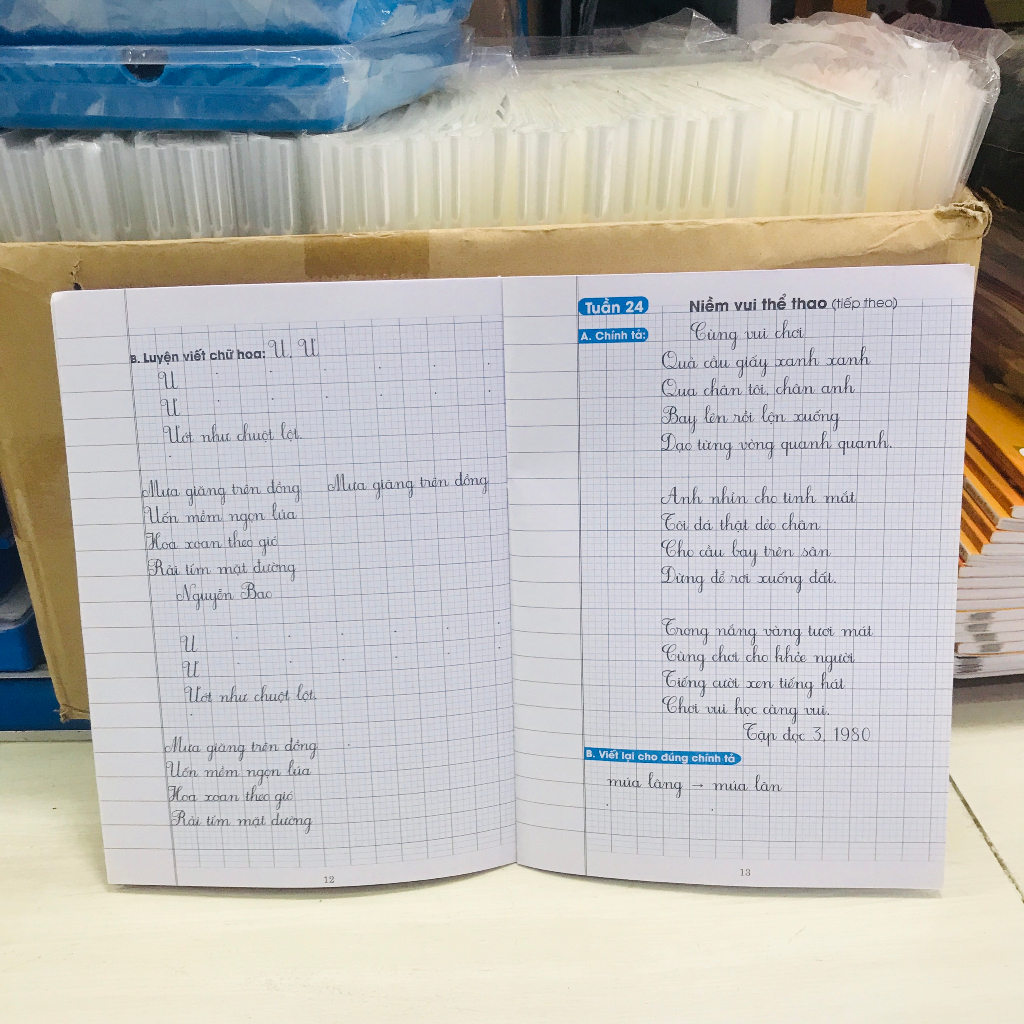 B. Luyện viết chữ hoa: U, Ư
U
Ư
Ướt như chuột lột.
Mưa giăng trên đồng Mưa giăng trên đồng
Uốn mềm ngọn lúa
Hoa xoan theo gió
Rải tím mặt đường
Nguyễn Bao
U
Ư
Ướt như chuột lột.
Mưa giăng trên đồng
Uốn mềm ngọn lúa
Hoa xoan theo gió
Rải tím mặt đường
12
Tuần 24 Niềm vui thể thao (tiếp theo)
A. Chính tả: Cùng vui chơi
Quả cầu giấy xanh xanh
Qua chân tôi, chân anh
Bay lên rồi lộn xuống
Dạo từng vòng quanh quanh.
Anh nhìn cho tinh mắt
Tôi đá thật dẻo chân
Cho cầu bay trên sân
Đừng để rơi xuống đất.
Trong nắng vàng tươi mát
Cùng chơi cho khỏe người
Tiếng cười xen tiếng hát
Chơi vui học càng vui.
Tập đọc 3, 1980
B. Viết lại cho đúng chính tả
múa lâng → múa lân
13